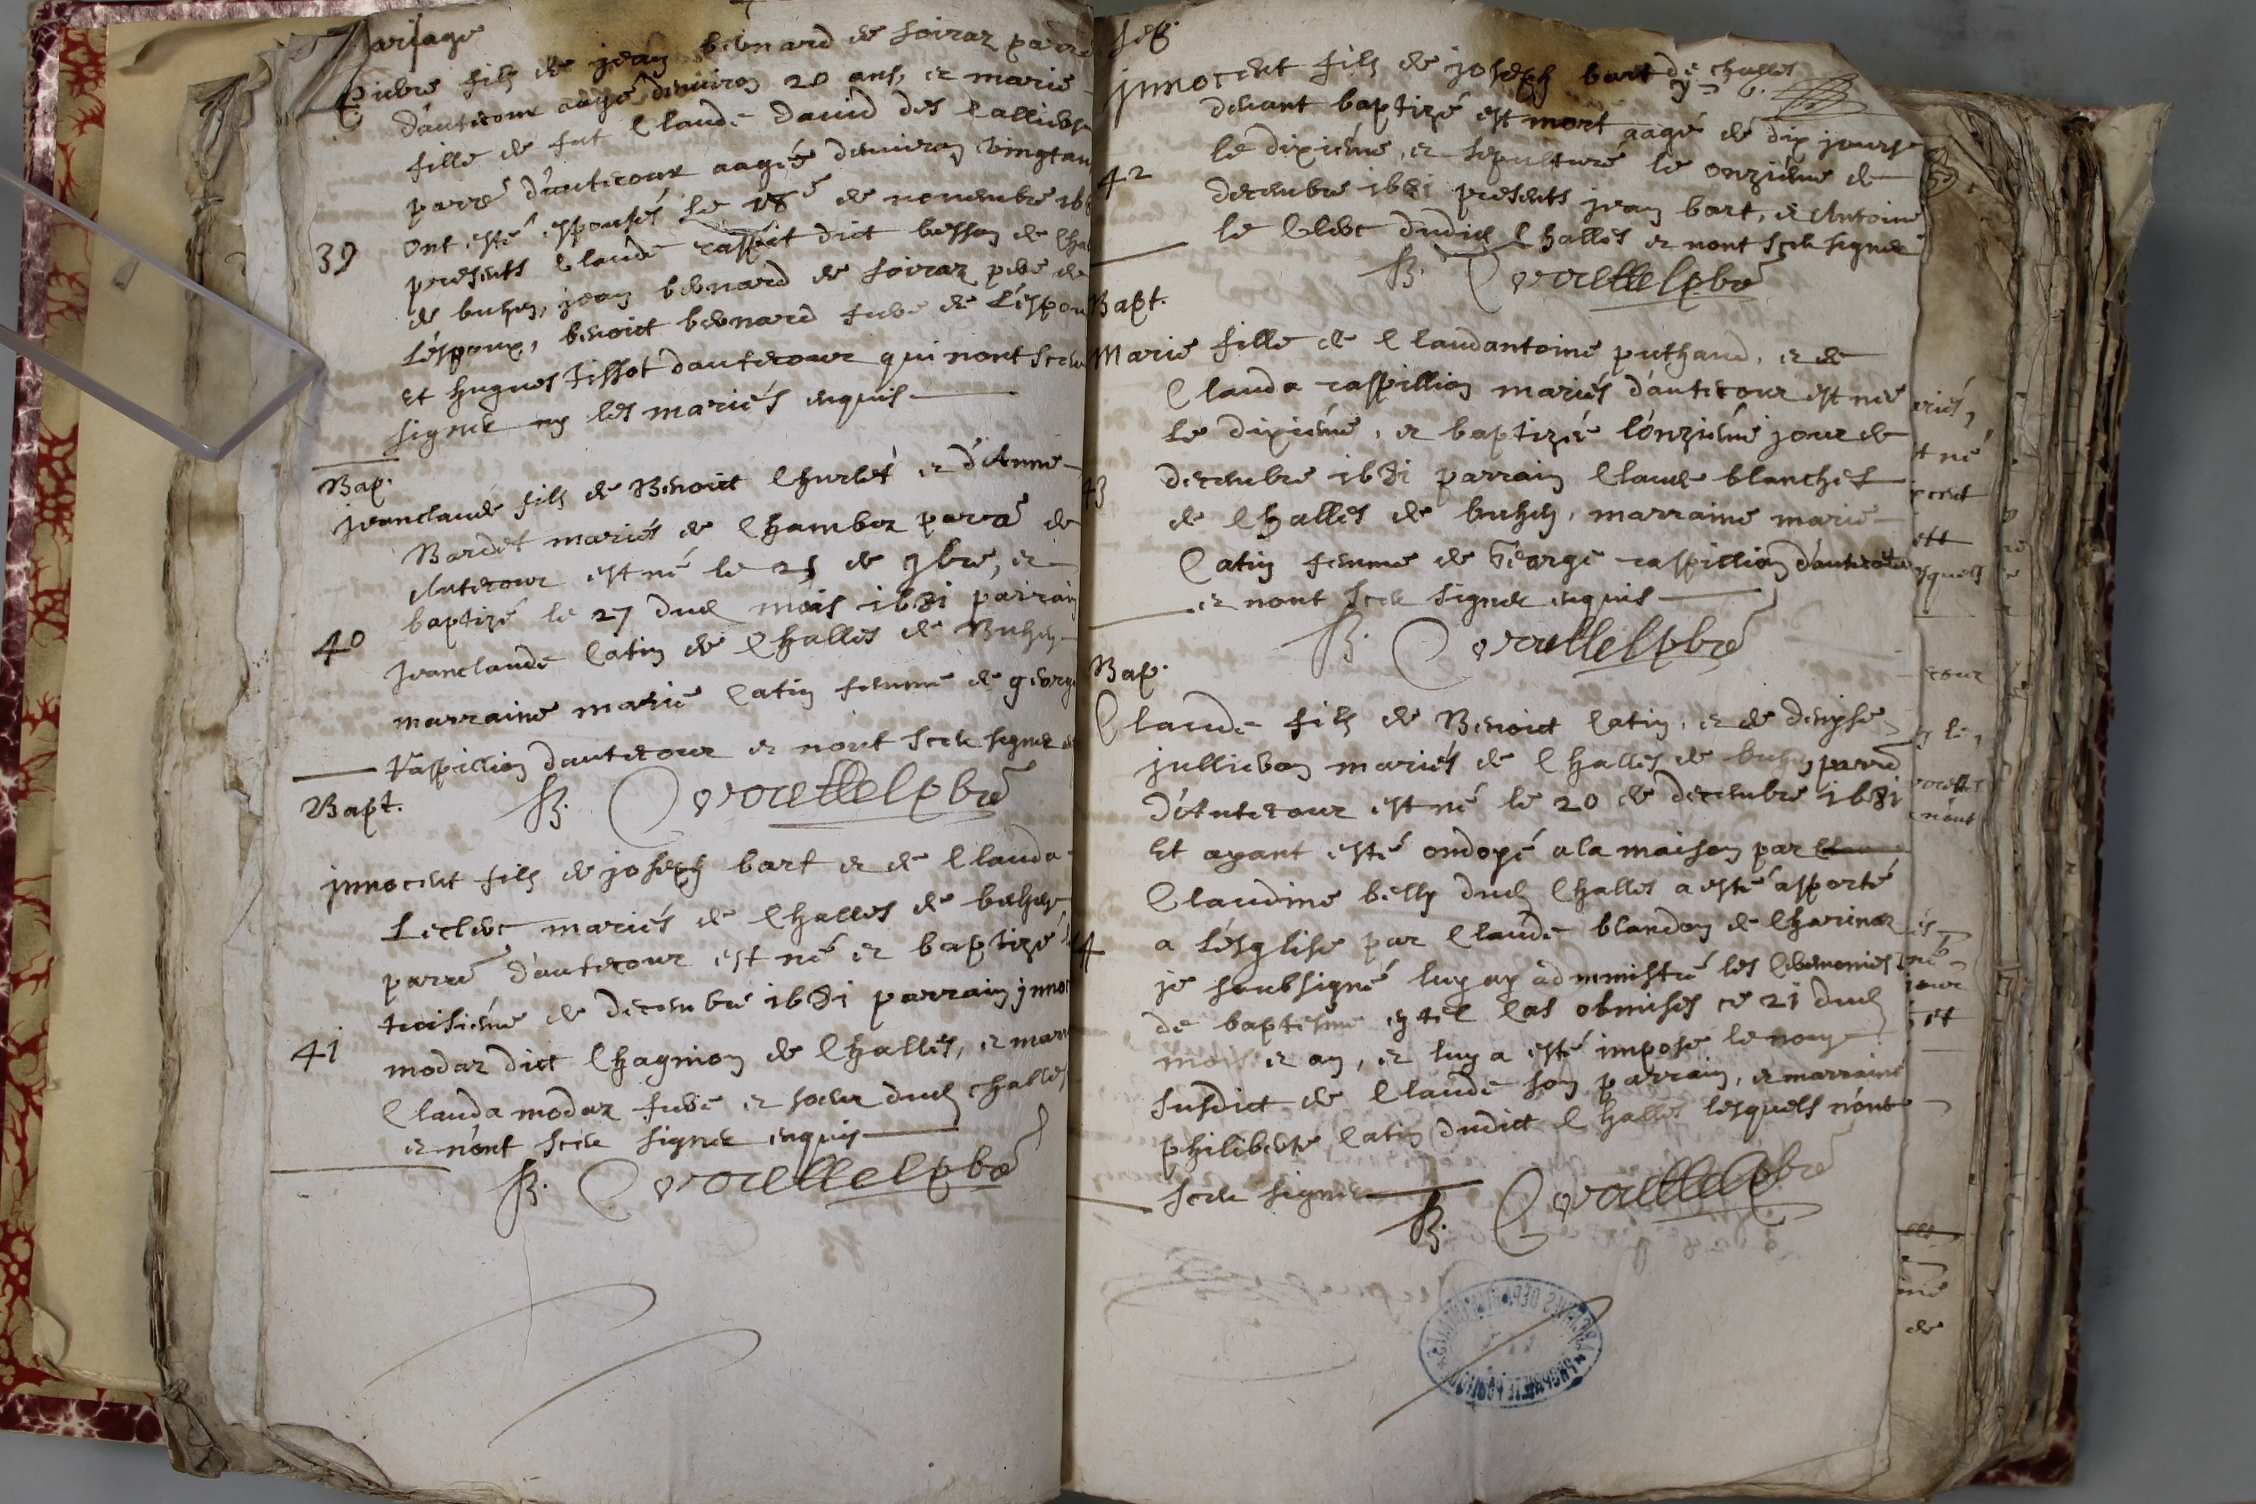 Mariage
Pierre fils de jean bernard de soiraz parre
dauterour aagé denviron 20 ans, et marie
fille de fut Claude david des Callieres
parre d'auterour aagée denviron vingt an
39
ont esté espousés le 18e de novembre 168
presents Claude raspit dict besson de Cha
de buhen, jean bernard de soiraz pere de
L'espoux, benoict bernard frere de L'espou
et hugues Tissot dauterour qui nont sceu
signer ny les mariés enquis
Bap.
jeanclaude fils de Benoict Churlet et d'Anne
Bardet mariés de Chamboz parre de
Auterour est né le 25 de 9bre, et
baptizé le 27 dud mois 1681 parrain
40
jeanclaude Catin de Challes de Buhen
marraine marie Catin femme de george
Raspillion dauterour et nont sceu signer
Bapt.
innocent fils de joseph bart et de Clauda
Leclerc mariés de Challes de buhen
parre d'auterour est né et baptizé
troisieme de decembre 1681 parrain innoc
41
modaz dict Chagnion de Challes, et marr
Clauda modaz frere et soeur dud challes
et n'ont sceu signer enquis
Sep.
innocent fils de joseph bart de challes
devant baptizé est mort aagé de dix jours
le dixieme, et sepulturé le onzieme de
42
decembre 1681 presents jean bart, et Antoine
le Clerc dudict Challes et nont sceu signer
Bapt.
Marie fille de Claudantoine puthaud, et de
Clauda raspillion mariés d'auterour est née
Le dixieme, et baptizée l'onzieme jour de
43
decembre 1681 parrain Claude blanchet
de Challes de buhen, marraine marie
Catin femme de George raspillion d'auterour
et nont sceu signer enquis
Bap.
Claude fils de Benoict Catin, et de denyse
jullieron mariés de Challes de buhen parre
D'Auterour est né le 20 de decembre 1681
Et ayant esté ondoyé a la maison par
Claudine belly dud Challes a esté asporté
4
a L'esglise par Claude blandon de Charinaz
je soubsigné luy ay administré les Ceremonies
de baptesme en tel cas obmises ce 21 dud
mois et an, et luy a esté imposé le nom
susdict de Claude son parrain, et marraine
philiberte Catin dudict Challes lesquels n'ont
sceu signer